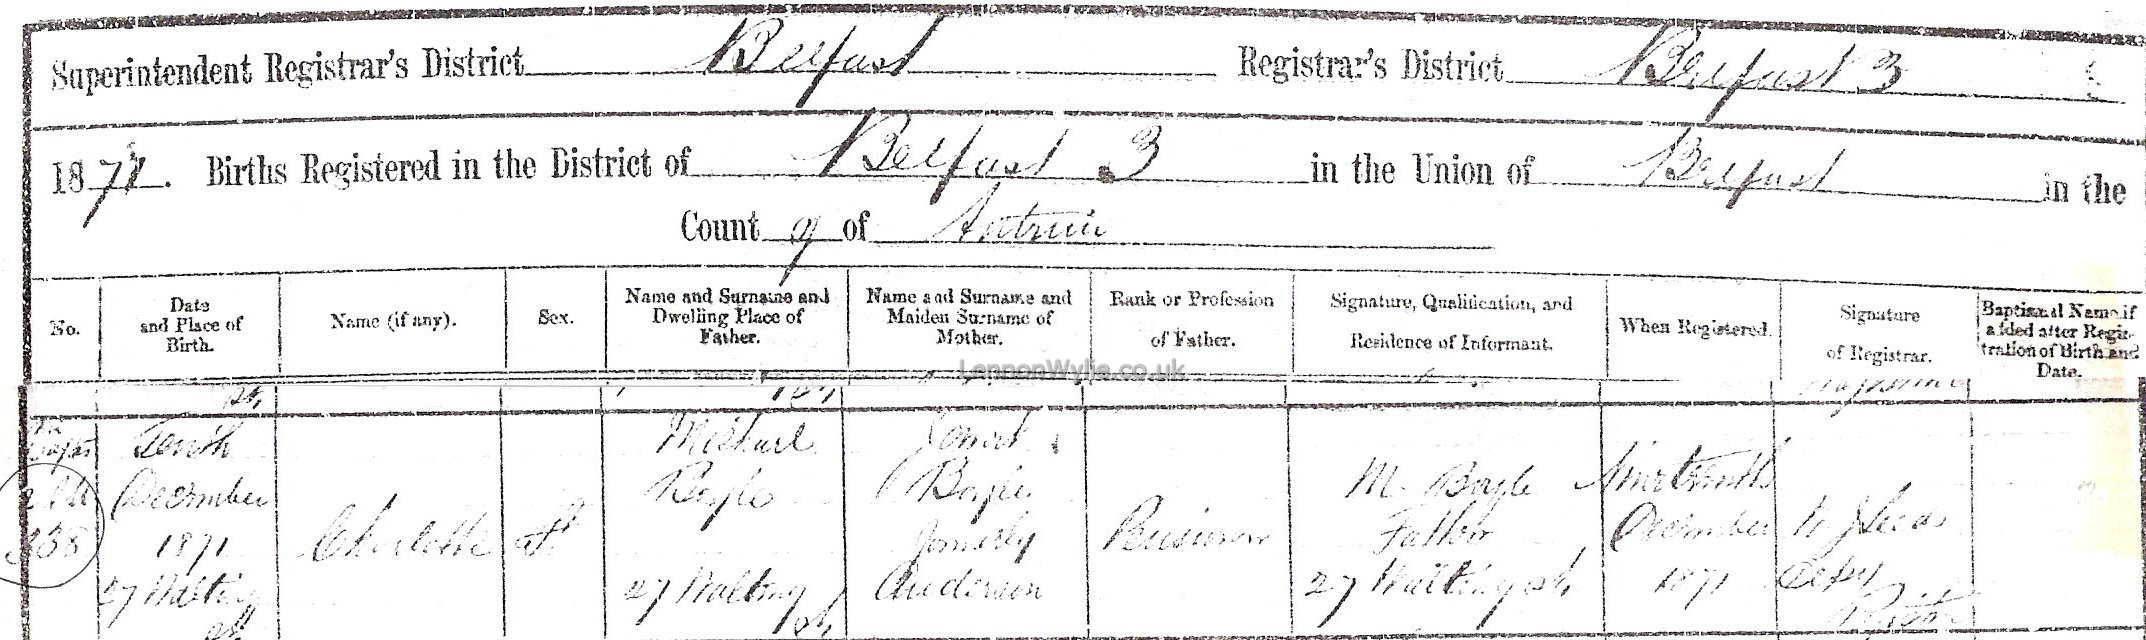 Superintendent Registrar's District Belfast Registrar's District Belfast 3
1871. Births Registered in the District of Belfast 3 in the Union of Belfast in the
County of Antrim
No.
Date
and Place of
Birth.
Name (if any).
Sex.
Name and Surname and
Dwelling Place of
Father.
Name and Surname and
Maiden Surname of
Mother.
Rank or Profession
of Father.
Signature, Qualification, and
Residence of Informant.
When Registered.
Signature
of Registrar.
Baptismal Name, if
added after Regis-
tration of Birth and
Date.
LennonWylie.co.uk
338
Tenth
December
1871
27
Charlotte
F
Michael
Boyle
27
St
Boyle
formerly
Anderson
M. Boyle
Father
27
St
Nineteenth
December
1871